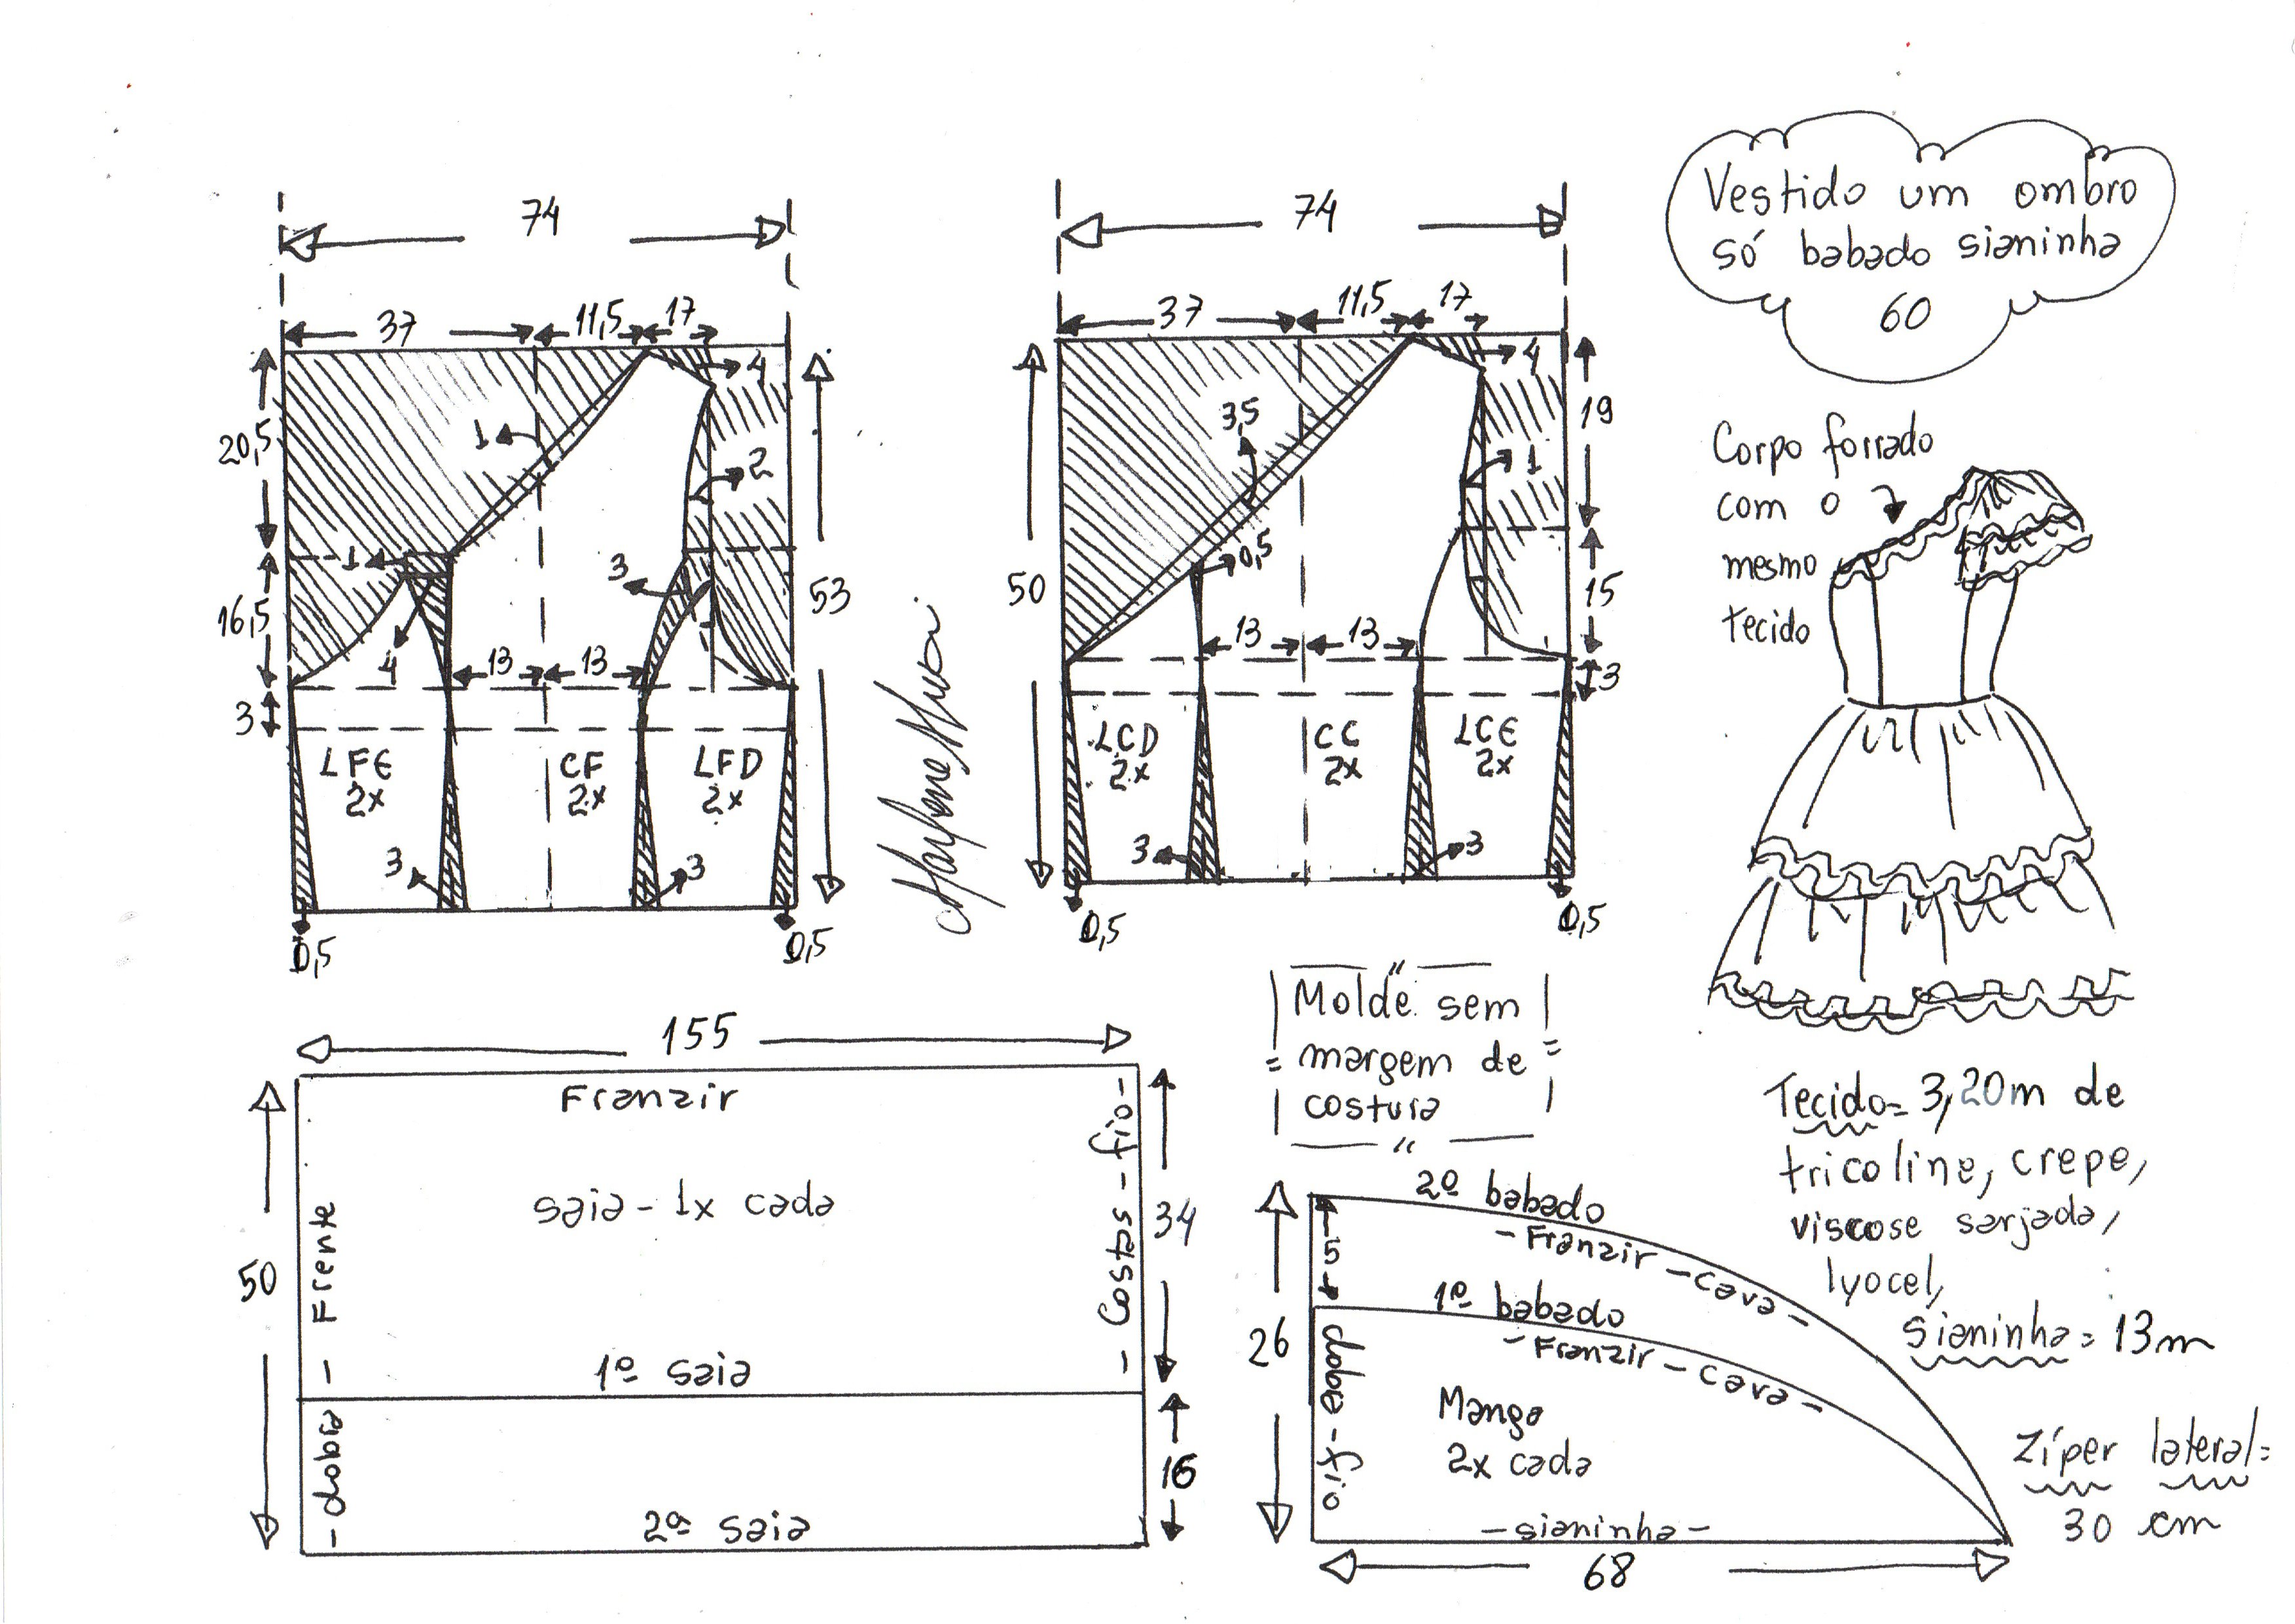 Vestido um ombro
só babado sianinha
60
74
37
11,5
17
4
1
2
20,5
1
3
53
16,5
4
13
13
3
LFE
2x
CF
2x
LFD
2x
3
3
0,5
0,5
74
37
11,5
17
4
3,5
19
1
0,5
50
15
13
13
3
LCD
2x
CC
2x
LCE
2x
3
3
0,5
0,5
Corpo forrado
com o
mesmo
tecido
Molde sem
margem de
costura
155
Franzir
saia - 1x cada
50
- dobra - Frente
- Costas - fio -
34
1ª saia
16
2ª saia
Tecido = 3,20m de
tricoline, crepe,
viscose sarjada,
lyocel,
sianinha = 13m
Zíper lateral =
30 cm
2º babado
- Franzir - cava -
5
1º babado
- Franzir - cava -
26
dobra - fio
Manga
2x cada
- sianinha -
68